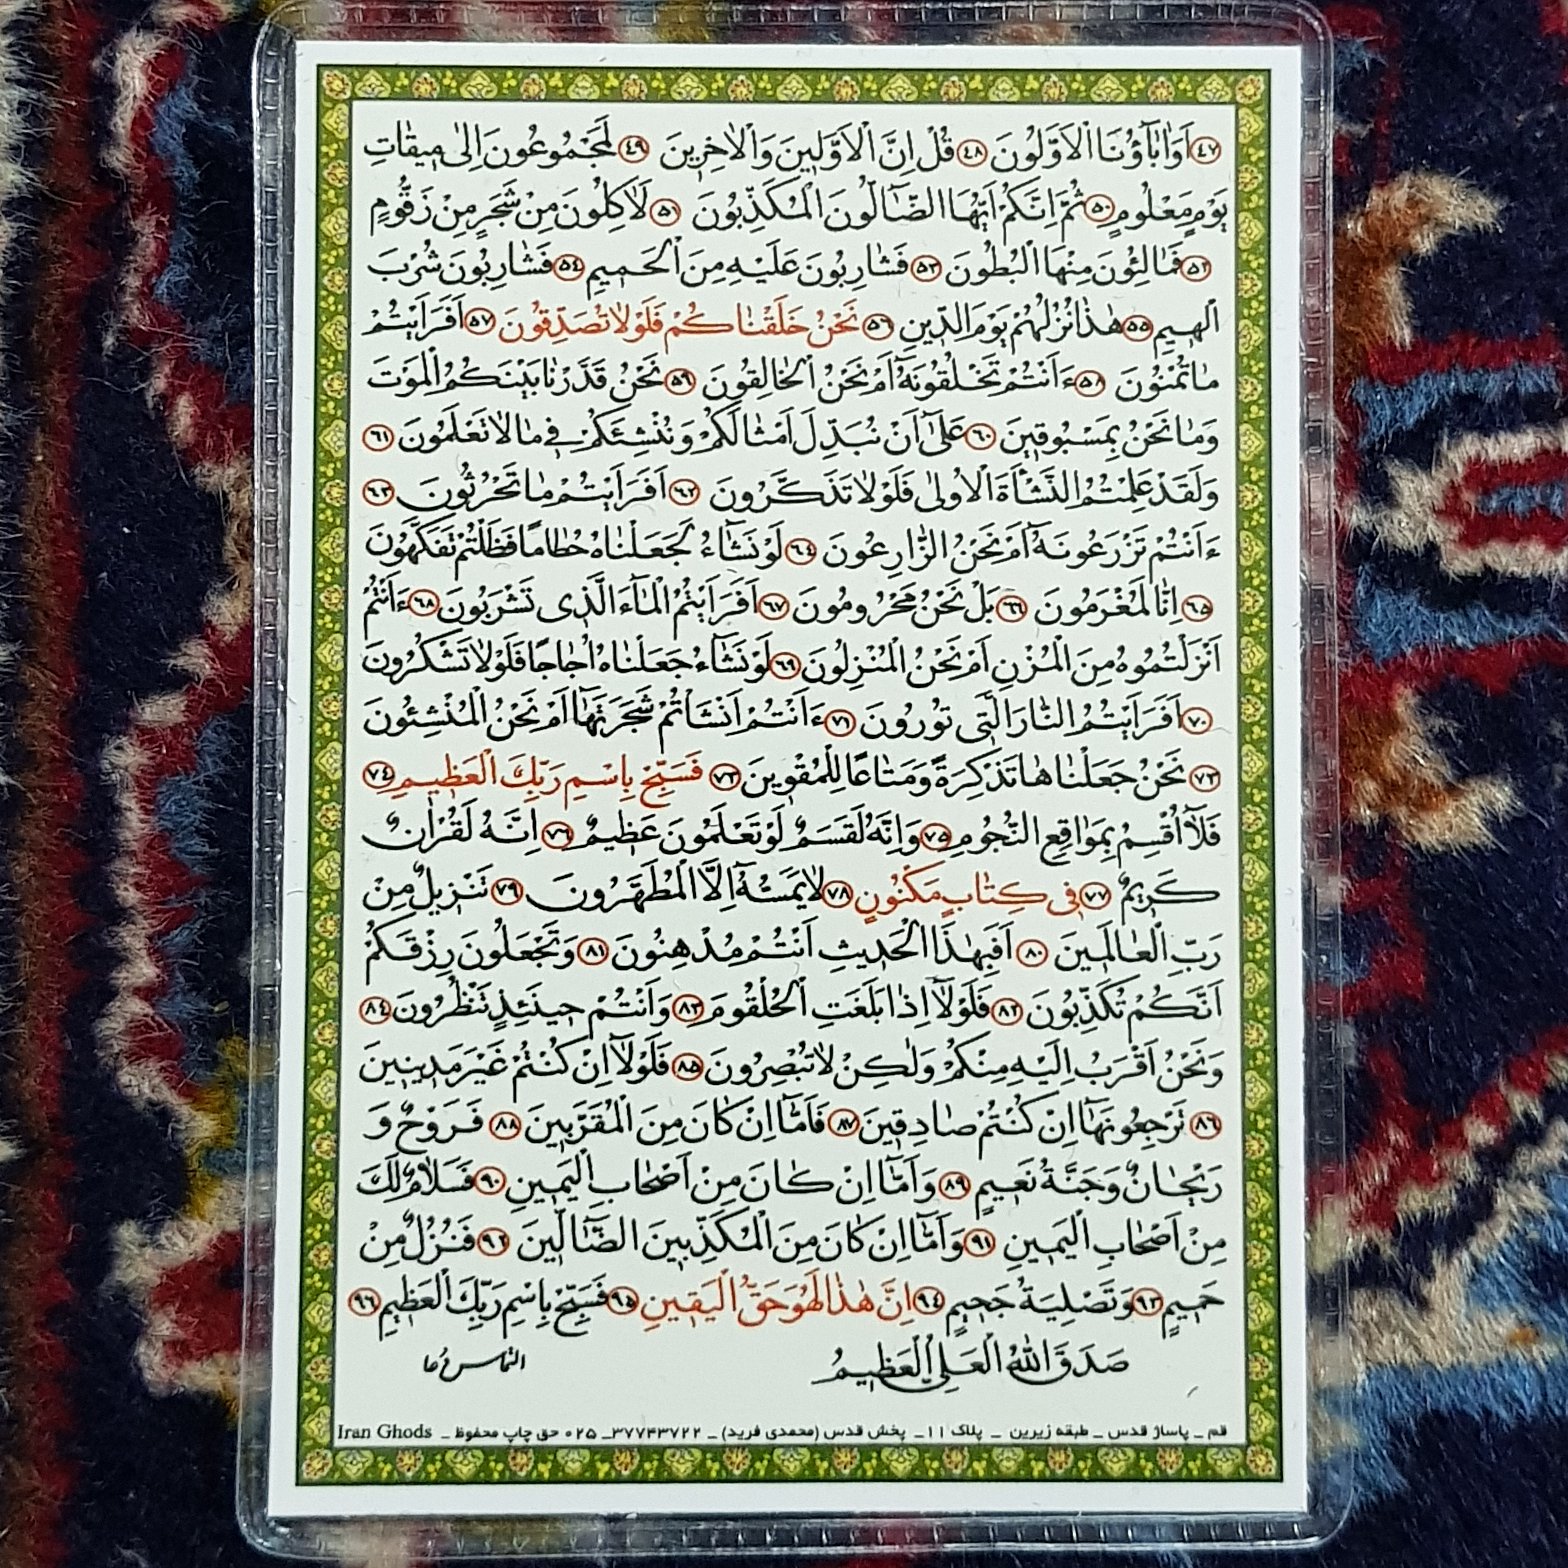 ﴿٤٧﴾ اَوَاٰبَآؤُنَا الْاَوَّلُونَ ﴿٤٨﴾ قُلْ اِنَّ الْاَوَّلينَ وَالْاٰخِرينَ ﴿٤٩﴾ لَمَجْمُوعُونَ اِلىٰ ميقَاتِ
يَوْمٍ مَعْلُومٍ ﴿۵٠﴾ ثُمَّ اِنَّكُمْ اَيُّهَا الضَّآلُّونَ الْمُكَذِّبُونَ ﴿۵١﴾ لَاٰكِلُونَ مِنْ شَجَرٍ مِنْ زَقُّومٍ
﴿۵٢﴾ فَمَالِئُونَ مِنْهَا الْبُطُونَ ﴿۵٣﴾ فَشَارِبُونَ عَلَيْهِ مِنَ الْحَميمِ ﴿۵٤﴾ فَشَارِبُونَ شُرْبَ
الْهيمِ ﴿۵۵﴾ هٰذَا نُزُلُهُمْ يَوْمَ الدّينِ ﴿۵٦﴾ نَحْنُ خَلَقْنَاكُمْ فَلَوْلَا تُصَدِّقُونَ ﴿۵٧﴾ اَفَرَاَيْتُمْ
مَا تُمْنُونَ ﴿۵٨﴾ ءَاَنْتُمْ تَخْلُقُونَهُٓ اَمْ نَحْنُ الْخَالِقُونَ ﴿۵٩﴾ نَحْنُ قَدَّرْنَا بَيْنَكُمُ الْمَوْتَ
وَمَا نَحْنُ بِمَسْبُوقينَ ﴿٦٠﴾ عَلىٰٓ اَنْ نُبَدِّلَ اَمْثَالَكُمْ وَنُنْشِئَكُمْ فى مَا لَا تَعْلَمُونَ ﴿٦١﴾
وَلَقَدْ عَلِمْتُمُ النَّشْاَةَ الْاُولىٰ فَلَوْلَا تَذَكَّرُونَ ﴿٦٢﴾ اَفَرَاَيْتُمْ مَا تَحْرُثُونَ ﴿٦٣﴾
ءَاَنْتُمْ تَزْرَعُونَهُٓ اَمْ نَحْنُ الزَّارِعُونَ ﴿٦٤﴾ لَوْ نَشَآءُ لَجَعَلْنَاهُ حُطَامًا فَظَلْتُمْ تَفَكَّهُونَ
﴿٦۵﴾ اِنَّا لَمُغْرَمُونَ ﴿٦٦﴾ بَلْ نَحْنُ مَحْرُومُونَ ﴿٦٧﴾ اَفَرَاَيْتُمُ الْمَآءَ الَّذى تَشْرَبُونَ ﴿٦٨﴾ ءَاَنْتُمْ
اَنْزَلْتُمُوهُ مِنَ الْمُزْنِ اَمْ نَحْنُ الْمُنْزِلُونَ ﴿٦٩﴾ لَوْ نَشَآءُ جَعَلْنَاهُ اُجَاجًا فَلَوْلَا تَشْكُرُونَ
﴿٧٠﴾ اَفَرَاَيْتُمُ النَّارَ الَّتى تُورُونَ ﴿٧١﴾ ءَاَنْتُمْ اَنْشَاْتُمْ شَجَرَتَهَآ اَمْ نَحْنُ الْمُنْشِئُونَ
﴿٧٢﴾ نَحْنُ جَعَلْنَاهَا تَذْكِرَةً وَمَتَاعًا لِلْمُقْوينَ ﴿٧٣﴾ فَسَبِّحْ بِاسْمِ رَبِّكَ الْعَظيمِ ﴿٧٤﴾
فَلَآ اُقْسِمُ بِمَوَاقِعِ النُّجُومِ ﴿٧۵﴾ وَاِنَّهُ لَقَسَمٌ لَوْ تَعْلَمُونَ عَظيمٌ ﴿٧٦﴾ اِنَّهُ لَقُرْاٰنٌ
كَريمٌ ﴿٧٧﴾ فى كِتَابٍ مَكْنُونٍ ﴿٧٨﴾ لَا يَمَسُّهُٓ اِلَّا الْمُطَهَّرُونَ ﴿٧٩﴾ تَنْزيلٌ مِنْ
رَبِّ الْعَالَمينَ ﴿٨٠﴾ اَفَبِهٰذَا الْحَديثِ اَنْتُمْ مُدْهِنُونَ ﴿٨١﴾ وَتَجْعَلُونَ رِزْقَكُمْ
اَنَّكُمْ تُكَذِّبُونَ ﴿٨٢﴾ فَلَوْلَآ اِذَا بَلَغَتِ الْحُلْقُومَ ﴿٨٣﴾ وَاَنْتُمْ حينَئِذٍ تَنْظُرُونَ ﴿٨٤﴾
وَنَحْنُ اَقْرَبُ اِلَيْهِ مِنْكُمْ وَلٰكِنْ لَا تُبْصِرُونَ ﴿٨۵﴾ فَلَوْلَآ اِنْ كُنْتُمْ غَيْرَ مَدينينَ
﴿٨٦﴾ تَرْجِعُونَهَآ اِنْ كُنْتُمْ صَادِقينَ ﴿٨٧﴾ فَاَمَّآ اِنْ كَانَ مِنَ الْمُقَرَّبينَ ﴿٨٨﴾ فَرَوْحٌ وَ
رَيْحَانٌ وَجَنَّةُ نَعيمٍ ﴿٨٩﴾ وَاَمَّآ اِنْ كَانَ مِنْ اَصْحَابِ الْيَمينِ ﴿٩٠﴾ فَسَلَامٌ لَكَ
مِنْ اَصْحَابِ الْيَمينِ ﴿٩١﴾ وَاَمَّآ اِنْ كَانَ مِنَ الْمُكَذِّبينَ الضَّآلّينَ ﴿٩٢﴾ فَنُزُلٌ مِنْ
حَميمٍ ﴿٩٣﴾ وَتَصْلِيَةُ جَحيمٍ ﴿٩٤﴾ اِنَّ هٰذَا لَهُوَ حَقُّ الْيَقينِ ﴿٩۵﴾ فَسَبِّحْ بِاسْمِ رَبِّكَ الْعَظيمِ ﴿٩٦﴾
صَدَقَ اللهُ الْعَلِىُّ الْعَظيمُ التماس دعا
قم _ پاساژ قدس _ طبقه زیرین _ پلاک ۱۱_ پخش قدس (محمدی فرید) _ ۳۷۷۴۳۷۲۲_۰۲۵ حق چاپ محفوظ _ Iran Ghods